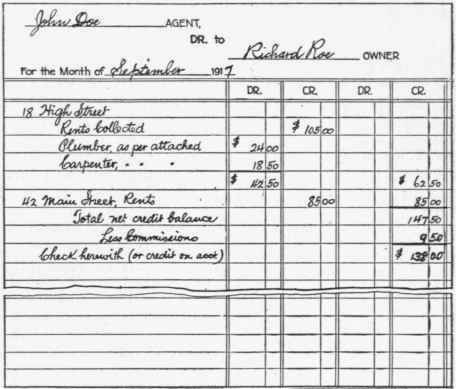 John Doe AGENT,
DR. to
Richard Roe OWNER
For the Month of September 1917
DR. CR. DR. CR.
18 High Street
Rents Collected $ 105 00
Plumber, as per attached $ 24 00
Carpenter, " " " 18 50
$ 42 50 $ 62 50
42 Main Street, Rents 85 00 85 00
Total net credit balance 147 50
Less Commissions 9 50
Check herewith (or credit on acct) $ 138 00